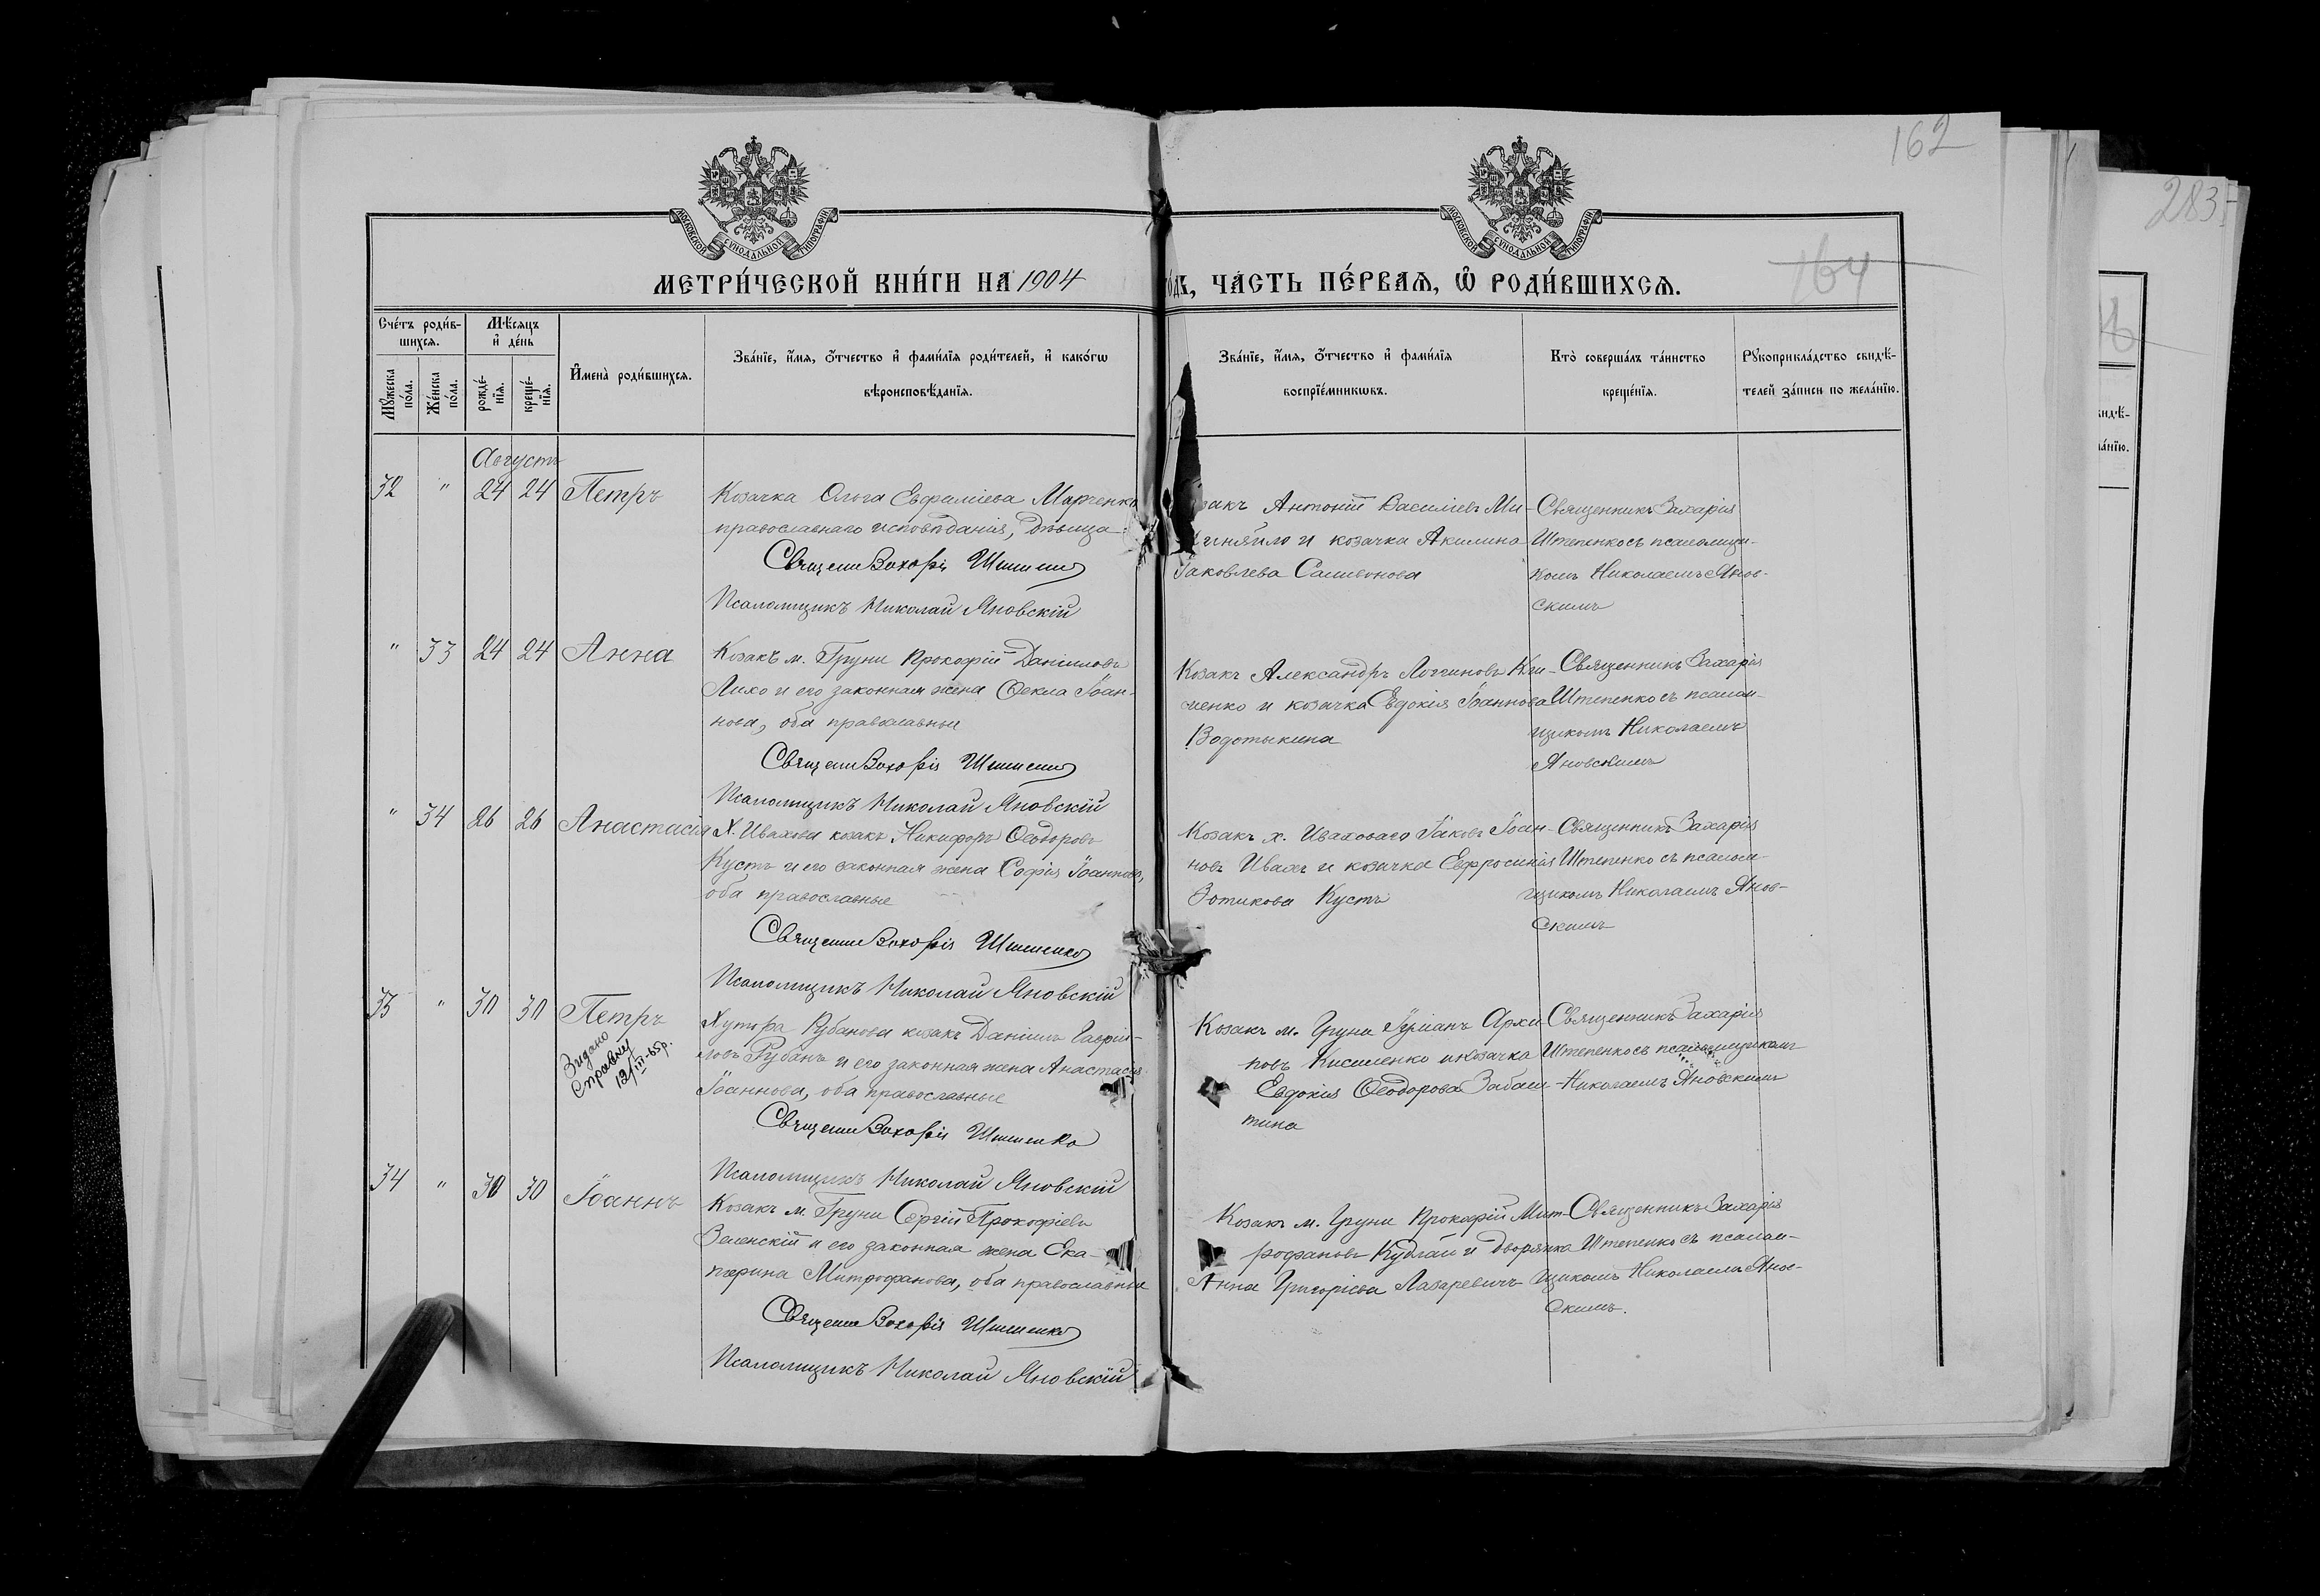 162
283
164
МОСКОВСКОЙ СѴНОДАЛЬНОЙ ТИПОГРАФІИ
МОСКОВСКОЙ СѴНОДАЛЬНОЙ ТИПОГРАФІИ
МЕТРИ́ЧЕСКОЙ КНИ́ГИ НА 1904
го́дъ, ЧА́СТЬ ПЕ́РВАЯ, Ѡ҆ РОДИ́ВШИХСЯ.
Сче́тъ роди́в-
шихся.
Мꙋ́жеска по́ла.
Же́нска по́ла.
Мѣ́сяцъ
и҆ де́нь
рожде́-
нїя.
креще́-
нїя.
И҆мена̀ роди́вшихся.
Зва́нїе, и҆́мя, ѻ҆́тчество и҆ фами́лїя роди́телей, и҆ како́гѡ
вѣроисповѣ́данїя.
Зва́нїе, и҆́мя, ѻ҆́тчество и҆ фами́лїя
воспрїе́мникѡвъ.
Кто̀ соверша́лъ та́инство
креще́нїя.
Рꙋкоприкла́дство свидѣ́-
телей за́писи по жела́нїю.
Августъ
32 " 24 24 Петръ
Козачка Ольга Евфиміева Марченко
православнаго исповѣданія, дѣвица
Священ. Захарія Штепенко
Псаломщикъ Николай Яновскій
Козакъ Антоній Василіевъ Ми-
няйло и козачка Акилина
Іаковлева Саливонова
Священникъ Захарія
Штепенко съ псаломщи-
комъ Николаемъ Янов-
скимъ
" 33 24 24 Анна
Козакъ м. Груни Прокофій Даніиловъ
Лихо и его законная жена Ѳекла Іоан-
нова, оба православные
Священ. Захарія Штепенко
Псаломщикъ Николай Яновскій
Козакъ Александръ Логгиновъ Кли-
менко и козачка Евдокія Іоаннова
Водотыкина
Священникъ Захарія
Штепенко съ псалом-
щикомъ Николаемъ
Яновскимъ
" 34 26 26 Анастасія
Х. Ивахова козакъ Никифоръ Ѳеодоровъ
Кустъ и его законная жена Софія Іоаннова,
оба православные
Священ. Захарія Штепенко
Псаломщикъ Николай Яновскій
Козакъ х. Иваховаго Іаковъ Іоан-
новъ Ивахъ и козачка Евфросинія
Зотикова Кустъ
Священникъ Захарія
Штепенко съ псалом-
щикомъ Николаемъ Янов-
скимъ
33 " 30 30 Петръ
Видано
справку
12/III-65р.
Хутора Рубанова козакъ Даніилъ Гаврии-
ловъ Рубанъ и его законная жена Анастасія
Іоаннова, оба православные
Священ. Захарія Штепенко
Псаломщикъ Николай Яновскій
Козакъ м. Груни Іуліанъ Архи-
повъ Кисиленко и козачка
Евдокія Ѳеодорова Забаш-
тина
Священникъ Захарія
Штепенко съ псаломщикомъ
Николаемъ Яновскимъ
34 " 30 30 Іоаннъ
Козакъ м. Груни Сергій Прокофіевъ
Зеленскій и его законная жена Ека-
терина Митрофанова, оба православные
Священ. Захарія Штепенко
Псаломщикъ Николай Яновскій
Козакъ м. Груни Прокофій Мит-
рофановъ Кудлай и дворянка
Анна Григоріева Лазаревичъ
Священникъ Захарія
Штепенко съ псалом-
щикомъ Николаемъ Янов-
скимъ.